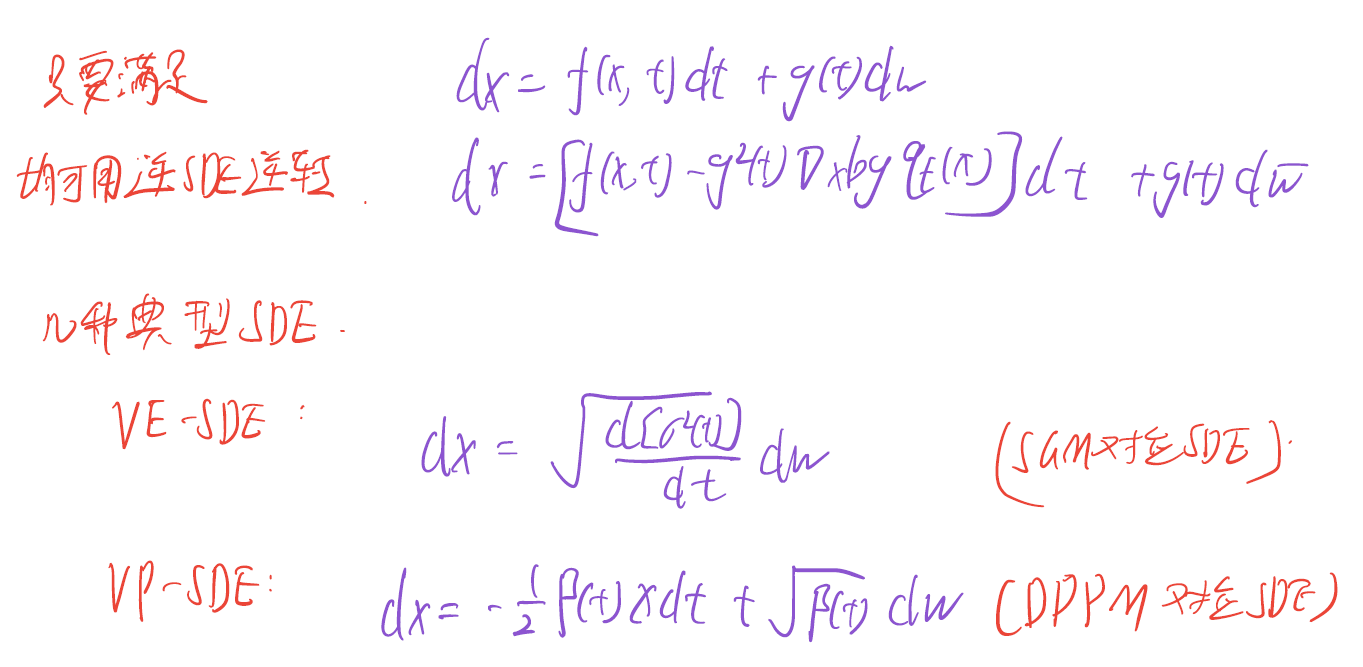 只要满足 dx = f(x, t)dt + g(t)dw
均可用逆SDE逆转. dx = [f(x,t) - g²(t)∇x log qt(x)]dt + g(t)dw̅
几种典型SDE.
VE-SDE: dx = √(d[σ²(t)]/dt) dw (SGM对应SDE).
VP-SDE: dx = -½β(t)xdt + √β(t) dw (DDPM对应SDE)